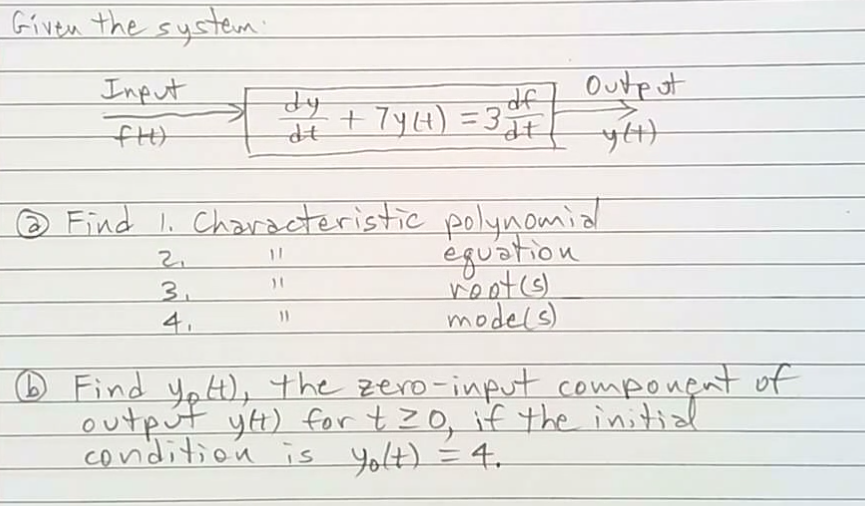 Given the system:
Input
f(t)
dy/dt + 7y(t) = 3 df/dt
Output
y(t)
ⓐ Find 1. Characteristic polynomial
2. " equation
3. " root(s)
4. " mode(s)
ⓑ Find y₀(t), the zero-input component of
output y(t) for t ≥ 0, if the initial
condition is y₀(t) = 4.